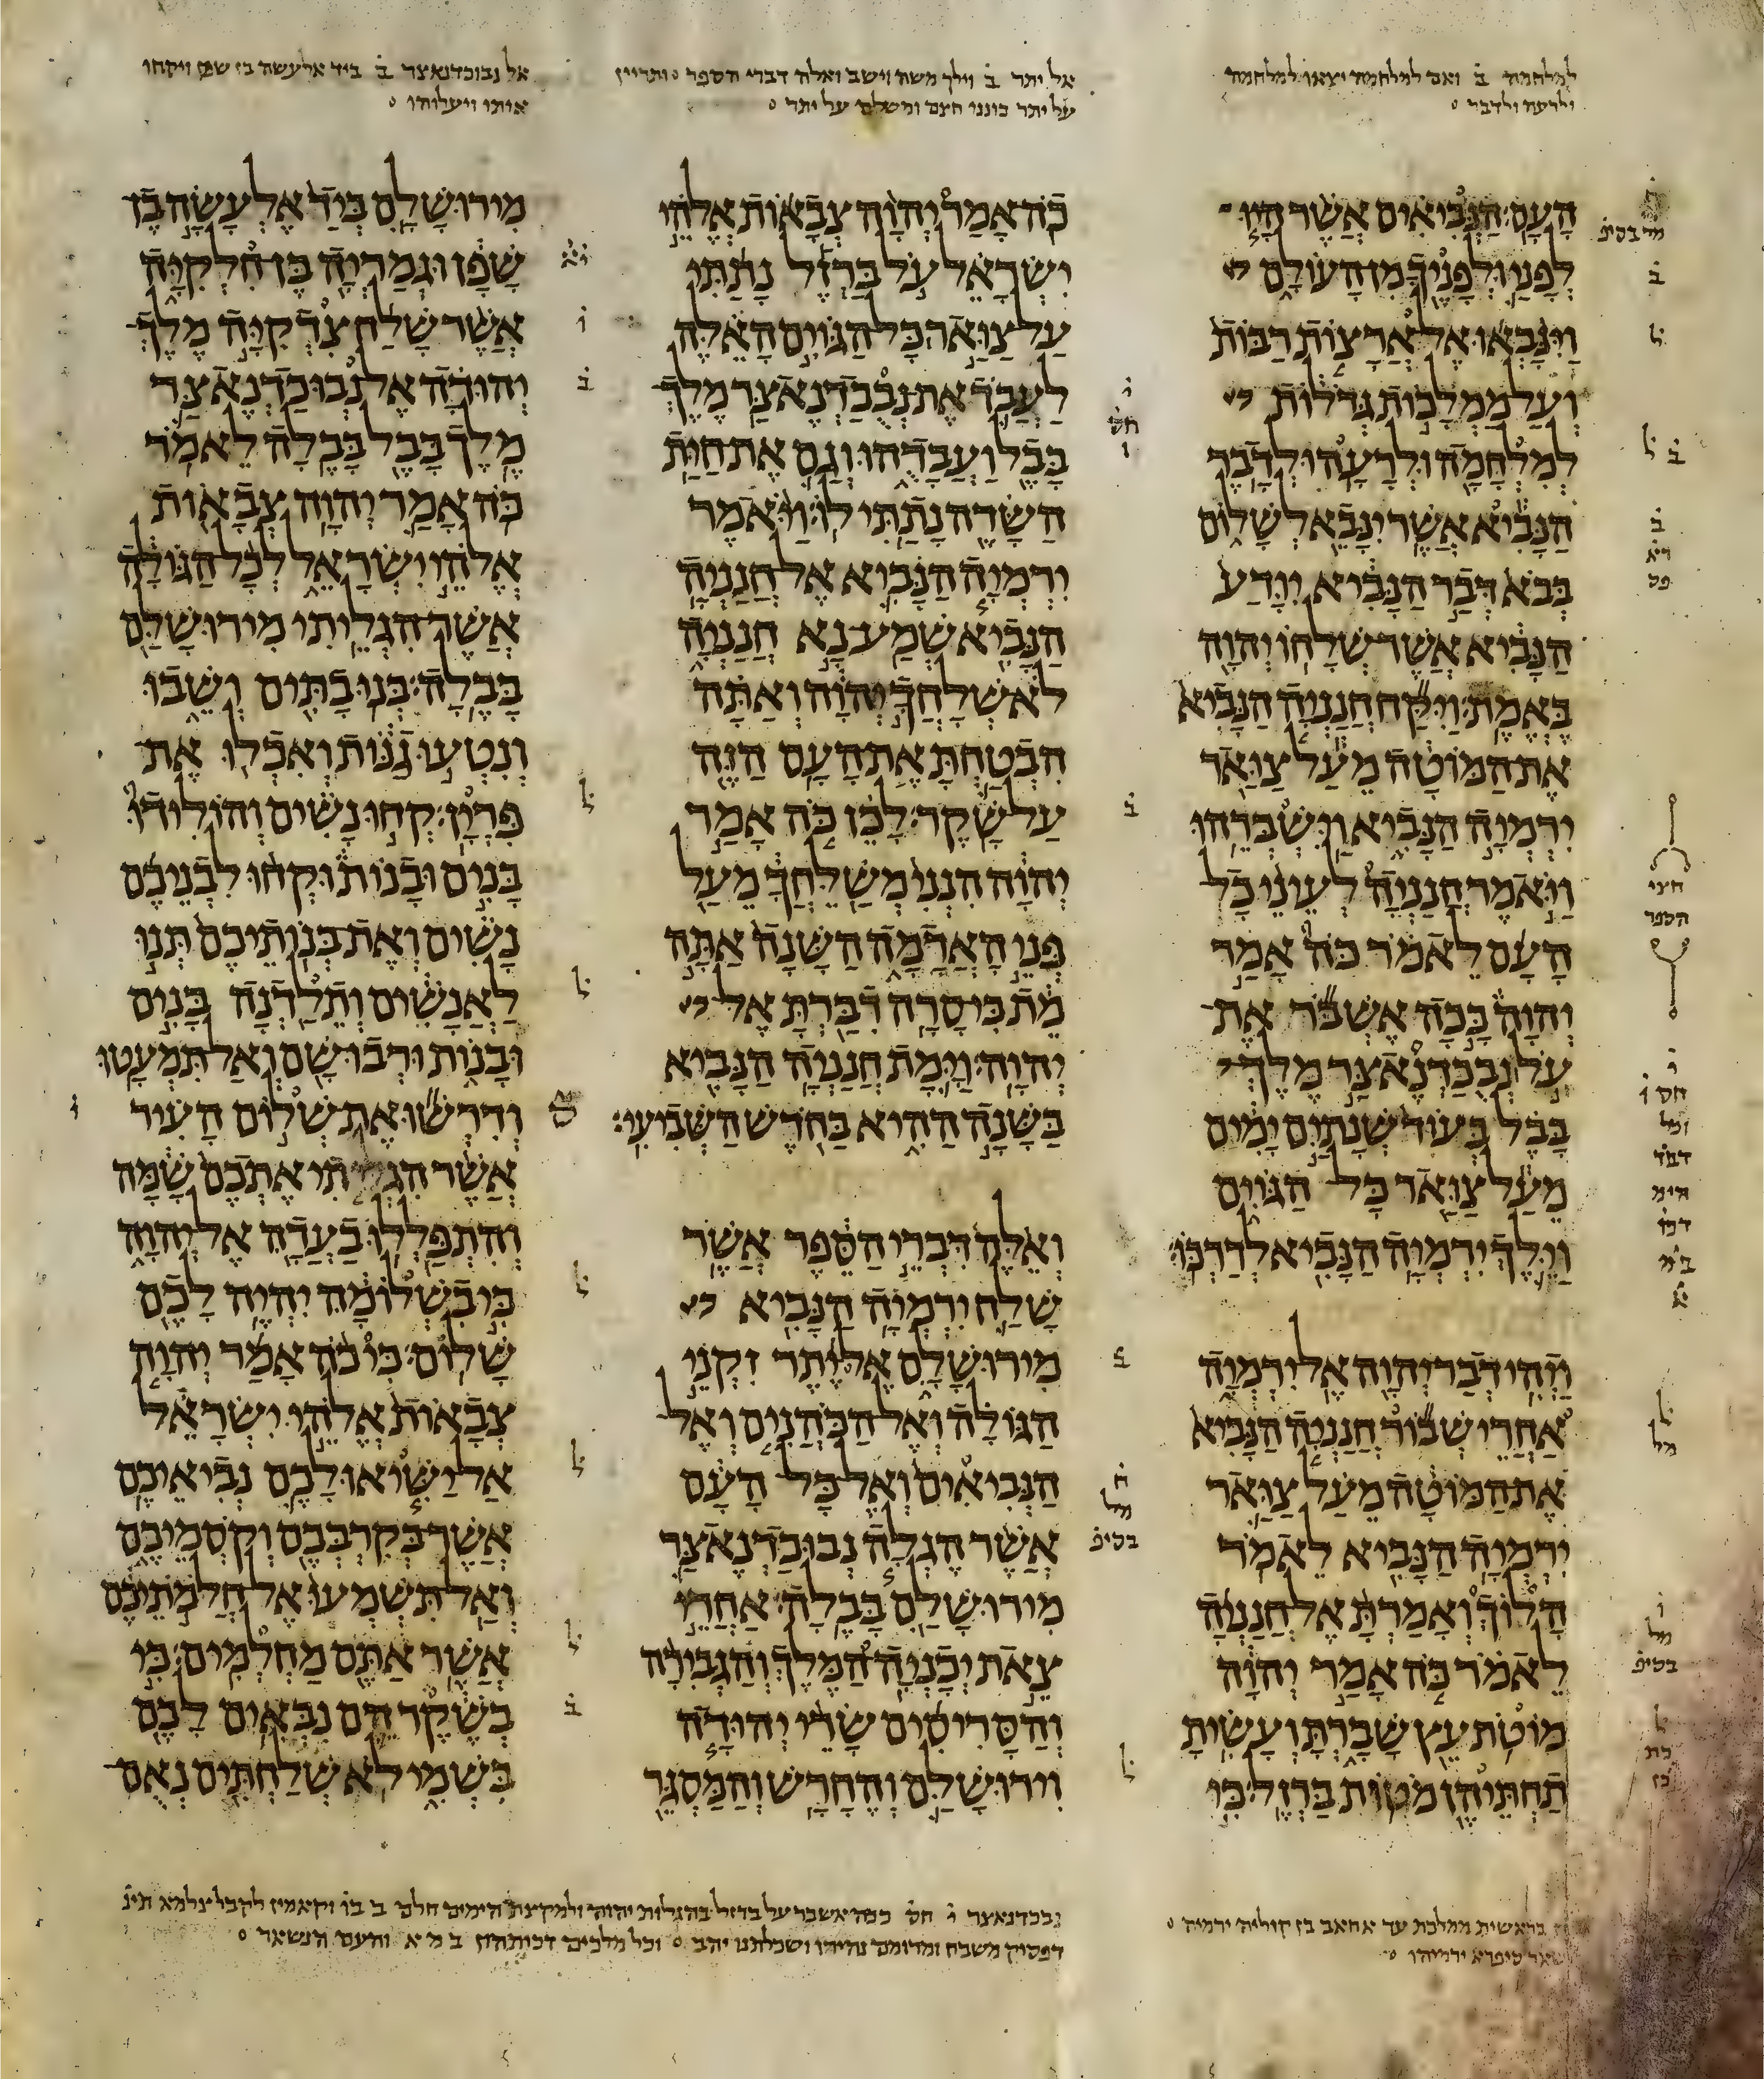 למלחמה ב ואם למלחמה יצאו למלחמה
ולרעה ולדבר
אל יתר ב וילך משה וישב ואלה דברי הספר ותריין
על יתר כוננו חצם ומשלם על יתר
אל נבוכדנאצר ב ביד אלעשה בן שפן ויקחו
אותו ויעלוהו
העם׃ הנביאים אשר היו
לפני ולפניך מן העולם
וינבאו אל ארצות רבות
ועל ממלכות גדלות
למלחמה ולרעה ולדבר׃
הנביא אשר ינבא לשלום
בבא דבר הנביא יודע
הנביא אשר שלחו יהוה
באמת׃ ויקח חנניה הנביא
את המוטה מעל צואר
ירמיה הנביא וישברהו׃
ויאמר חנניה לעיני כל
העם לאמר כה אמר
יהוה ככה אשבר את
על נבכדנאצר מלך
בבל בעוד שנתים ימים
מעל צואר כל הגוים
וילך ירמיה הנביא לדרכו׃
ויהי דבר יהוה אל ירמיה
אחרי שבור חנניה הנביא
את המוטה מעל צואר
ירמיה הנביא לאמר׃
הלוך ואמרת אל חנניה
לאמר כה אמר יהוה
מוטת עץ שברת ועשית
תחתיהן מטות ברזל׃ כי
כה אמר יהוה צבאות אלהי
ישראל על ברזל נתתי
על צואר כל הגוים האלה
לעבד את נבכדנאצר מלך
בבל ועבדהו וגם את חית
השדה נתתי לו׃ ויאמר
ירמיה הנביא אל חנניה
הנביא שמע נא חנניה
לא שלחך יהוה ואתה
הבטחת את העם הזה
על שקר׃ לכן כה אמר
יהוה הנני משלחך מעל
פני האדמה השנה אתה
מת כי סרה דברת אל
יהוה׃ וימת חנניה הנביא
בשנה ההיא בחדש השביעי׃
ואלה דברי הספר אשר
שלח ירמיה הנביא
מירושלם אל יתר זקני
הגולה ואל הכהנים ואל
הנביאים ואל כל העם
אשר הגלה נבוכדנאצר
מירושלם בבלה׃ אחרי
צאת יכניה המלך והגבירה
והסריסים שרי יהודה
וירושלם והחרש והמסגר
מירושלם׃ ביד אלעשה בן
שפן וגמריה בן חלקיה
אשר שלח צדקיה מלך
יהודה אל נבוכדנאצר
מלך בבל בבלה לאמר׃
כה אמר יהוה צבאות
אלהי ישראל לכל הגולה
אשר הגליתי מירושלם
בבלה׃ בנו בתים ושבו
ונטעו גנות ואכלו את
פרין׃ קחו נשים והולידו
בנים ובנות וקחו לבניכם
נשים ואת בנותיכם תנו
לאנשים ותלדנה בנים
ובנות ורבו שם ואל תמעטו׃
ודרשו את שלום העיר
אשר הגליתי אתכם שמה
והתפללו בעדה אל יהוה
כי בשלומה יהיה לכם
שלום׃ כי כה אמר יהוה
צבאות אלהי ישראל
אל ישיאו לכם נביאיכם
אשר בקרבכם וקסמיכם
ואל תשמעו אל חלמתיכם
אשר אתם מחלמים׃ כי
בשקר הם נבאים לכם
בשמי לא שלחתים נאם
חצי
הספר
בראשית ממלכת עד אחאב בן קוליה ירמיה
שאר סיפרא ירמיהו
נבכדנאצר ו חס ככה אשבר על ברזל בהגלות יהוה ולמקצת הימים חלם